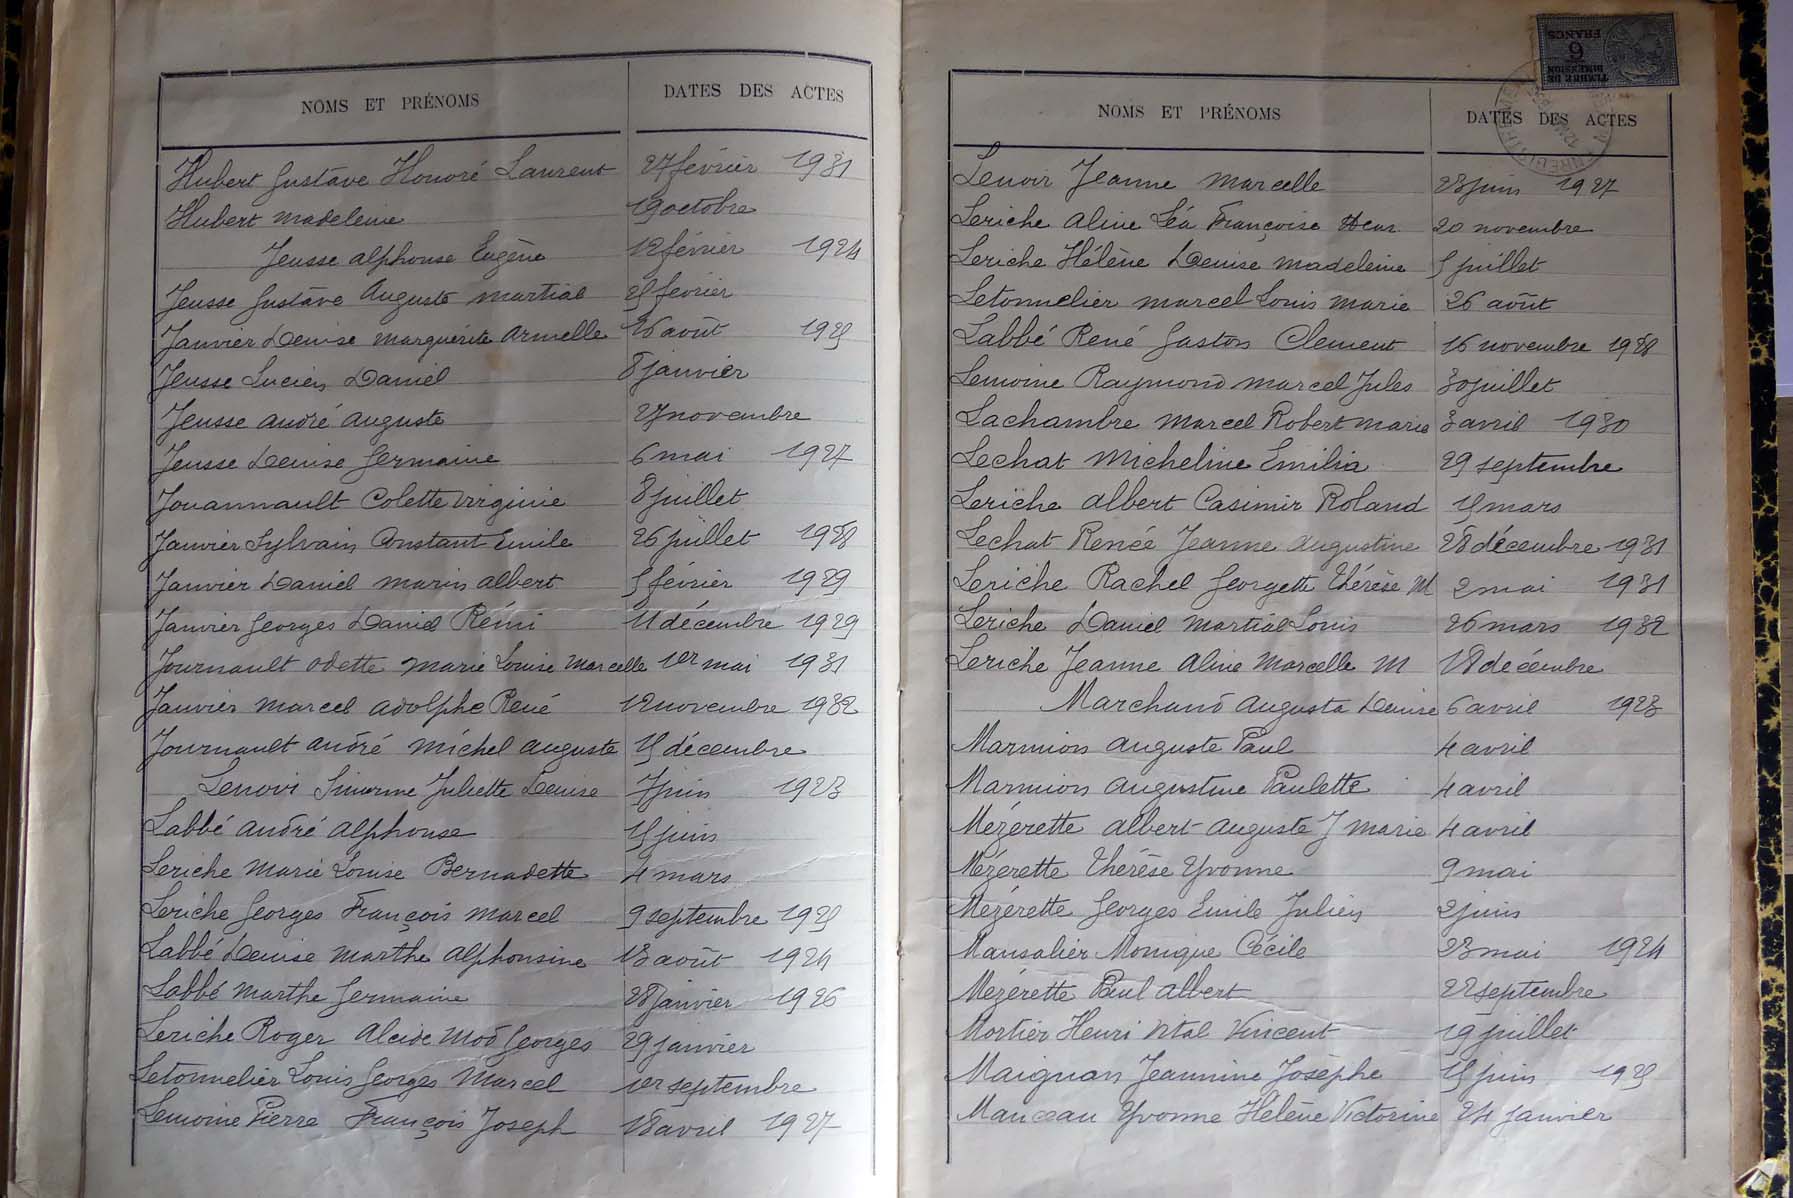 NOMS ET PRÉNOMS DATES DES ACTES
Hubert Gustave Honoré Laurent 27 février 1931
Hubert Madeleine 19 octobre
Jeusse Alphonse Eugène 12 février 1924
Jeusse Gustave Auguste Martial 25 février
Janvier Denise Marguerite Armelle 26 août 1925
Jeusse Lucien Daniel 8 janvier
Jeusse André Auguste 27 novembre
Jeusse Denise Germaine 6 mai 1927
Jouannault Colette Virginie 8 juillet
Janvier Sylvain Constant Emile 26 juillet 1928
Janvier Daniel Marin Albert 5 février 1929
Janvier Georges Daniel Rémi 11 décembre 1929
Journault Odette Marie Louise Marcelle 1er mai 1931
Janvier Marcel Adolphe René 12 novembre 1932
Journault André Michel Auguste 15 décembre
Lenovi Simonne Juliette Denise 7 juin 1923
Labbé André Alphonse 15 juin
Leriche Marie Louise Bernadette 4 mars
Leriche Georges François Marcel 9 septembre 1925
Labbé Denise Marthe Alphonsine 13 août 1924
Labbé Marthe Germaine 28 janvier 1926
Leriche Roger Alcide Mod Georges 29 janvier
Letonnelier Louis Georges Marcel 1er septembre
Lemoine Pierre François Joseph 18 avril 1927
TIMBRE DE DIMENSION
6 FRANCS
NOMS ET PRÉNOMS DATES DES ACTES
Lenoir Jeanne Marcelle 23 juin 1927
Leriche Aline Léa Françoise Hear. 20 novembre
Leriche Hélène Denise Madeleine 5 juillet
Letonnelier Marcel Louis Marie 26 août
Labbé René Gaston Clement 16 novembre 1928
Lemoine Raymond Marcel Jules 30 juillet
Lachambre Marcel Robert Marie 3 avril 1930
Lechat Micheline Emilia 29 septembre
Leriche Albert Casimir Roland 15 mars
Lechat Renée Jeanne Augustine 28 décembre 1931
Leriche Rachel Georgette Thérèse M 2 mai 1931
Leriche Daniel Martial Louis 26 mars 1932
Leriche Jeanne Aline Marcelle M 18 décembre
Marchand Augusta Denise 6 avril 1923
Marmion Auguste Paul 4 avril
Marmion Augustine Paulette 4 avril
Mézérette Albert Auguste J Marie 4 avril
Mézérette Thérèse Yvonne 9 mai
Mézérette Georges Emile Julien 2 juin
Mansalier Monique Cécile 23 mai 1924
Mézérette Paul Albert 22 septembre
Mortier Henri Vital Vincent 19 juillet
Maignan Jeannine Josèphe 15 juin 1925
Manceau Yvonne Hélène Victorine 24 janvier